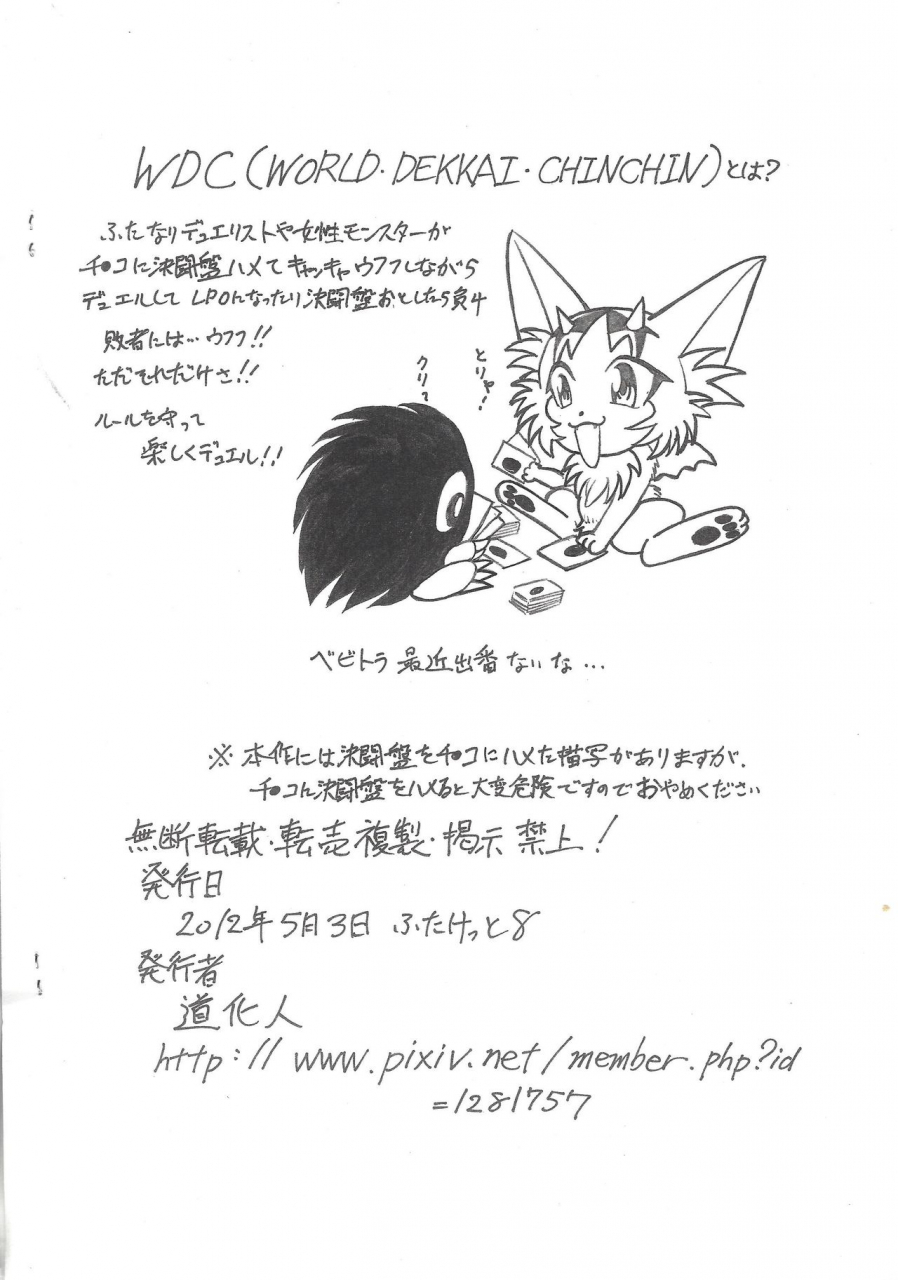 WDC(WORLD・DEKKAI・CHINCHIN)とは?
ふたなりデュエリストや女性モンスターが
チ●コに決闘盤ハメてキャッキャウフフしながら
デュエルして LP0になったり決闘盤おとしたら負け
敗者には…ウフフ!!
ただそれだけさ!!
ルールを守って
楽しくデュエル!!
クリ?
とりゃ!
ベビトラ 最近出番ないな…
※本作には決闘盤をチ●コにハメた描写がありますが、
チ●コに決闘盤をハメると大変危険ですのでおやめください
無断転載・転売複製・掲示禁止!
発行日
2012年5月3日 ふたけっと8
発行者
道化人
http://www.pixiv.net/member.php?id
=1281757